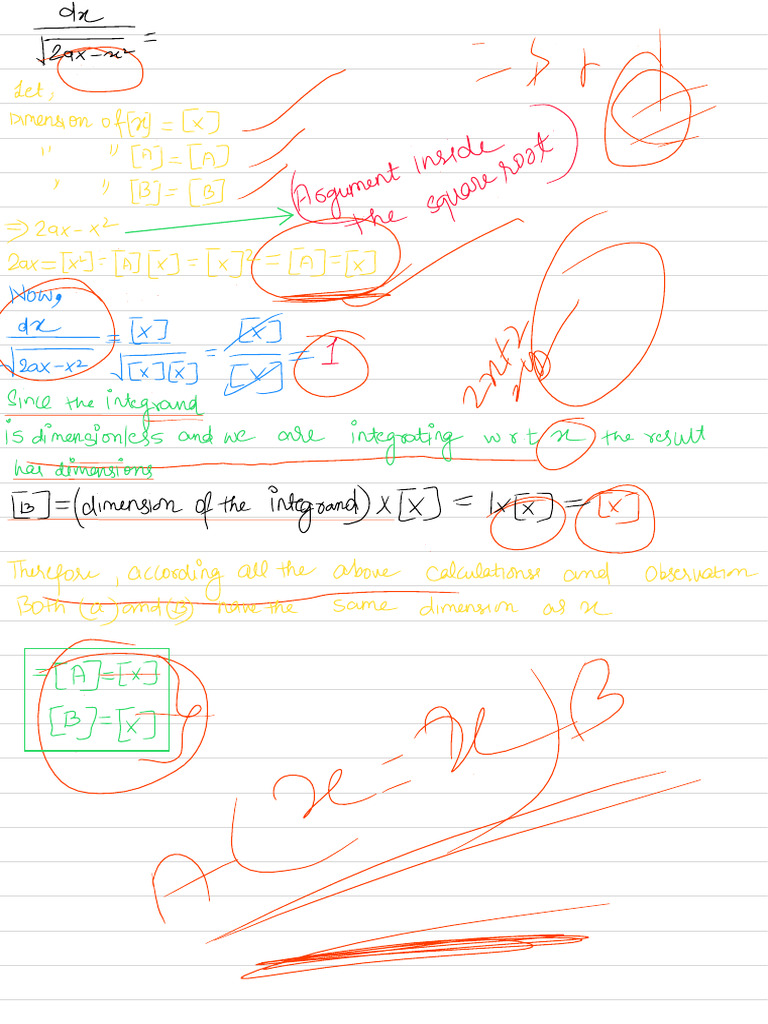 dx
√2ax-x² =
Let,
Dimension of [x] = [X]
" " [A] = [A]
" " [B] = [B]
(Argument inside
the square root)
⇒ 2ax - x²
2ax = [x²] = [A] [x] = [x]² = [A] = [x]
Now,
dx/√2ax-x² = [X]/√[X][X] = [X]/[X] = 1
Since the integrand
is dimensionless and we are integrating w r t x the result
has dimensions
[B] = (dimension of the integrand) X [X] = 1x[X] = [X]
Therefore, according all the above calculations and Observation
Both (a) and (B) have the same dimension as x
= [A] = [X]
[B] = [X]
A (x = x) B